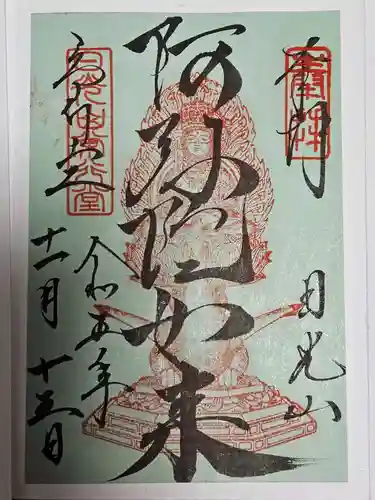 奉拝
日光山
阿弥陀如来
令和五年
十一月十三日